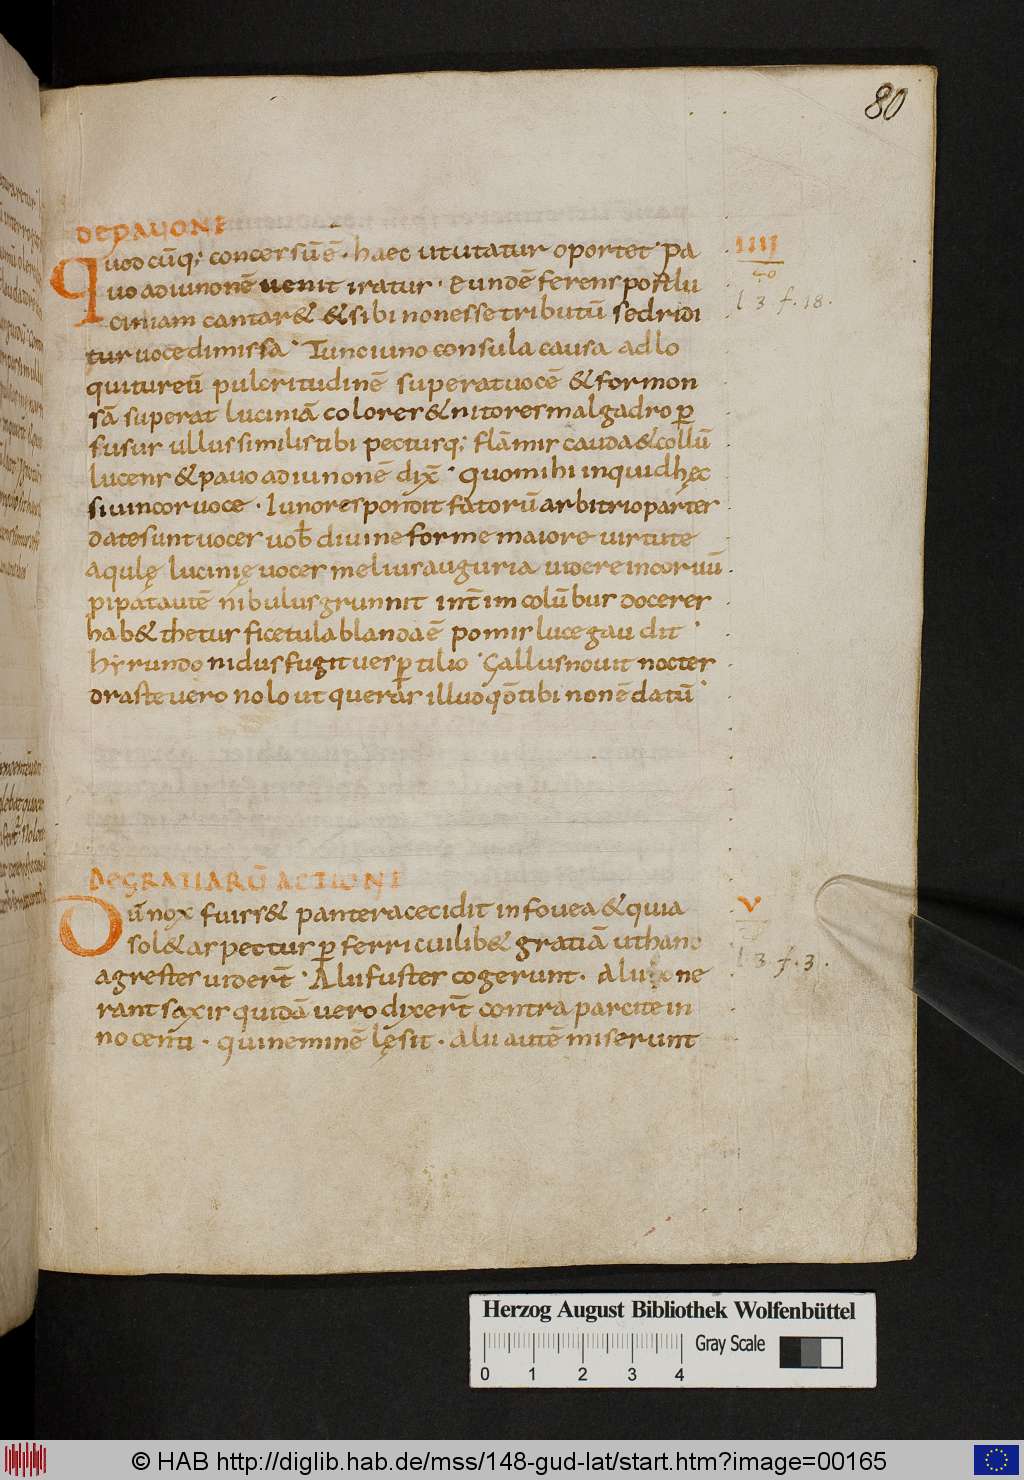 80
DE PAUONE
Quod cūq; concersū ē · haec ut utatur oportet Pa
IIII
40
uo ad iunonē uenit iratur · & undē ferens post lu
l 3 f. 18.
ciniam cantar& & sibi non esse tributū sed ridi
tur uoce dimissa · Tunc iuno consula causa ad lo
quitur eū pulcritudinē superat uocē & formon
sā superat luciniā colorer & nitores malgadro ꝑ
fusur ullus similis tibi pecturq; flāmir cauda & collū
lucenr & pauo ad iunonē dix̄ · Quo mihi inquid hęc
si uincor uoce · Iuno respondit fatorū arbitrio parter
date sunt uocer uob̄ diuine forme maiore uirtute
aqulę lucinię uocer meliur auguria uidere in coruū ·
pipat autē nibulus grunnit int̄im colūbur docerer
hab& thetur ficetula blanda ē pomir luce gaudit ·
hyrundo nidus fugit uesꝑtilio · Gallus nouit nocter
draste uero nolo ut querar illud qō tibi non ē datū ·
DE GRATIARŪ ACTIONE
Dū nox fuirs& pantera cecidit in fouea & quia
V
sol& arpectur ꝑ ferri cuilib& gratiā ut hanc
l 3 f. 3.
agrestes uidert̄ · Alii fuster cogerunt · alii one
rant saxir quidā uero dixert̄ contra parcite in
nocenti · qui neminē lęsit · alii autē miserunt
Herzog August Bibliothek Wolfenbüttel
Gray Scale
0 1 2 3 4
© HAB http://diglib.hab.de/mss/148-gud-lat/start.htm?image=00165